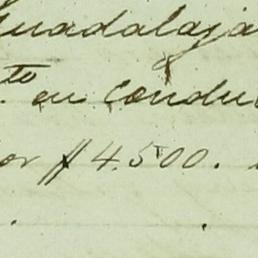 Guadalaja
to en conduc
or $4.500.